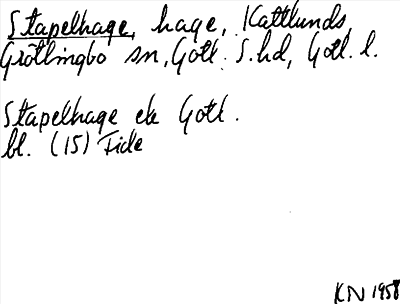 Stapelhage, hage, Kattlunds
Grötlingbo sn, Gotl. S. hd, Gotl. l.
Stapelhage ek Gotl.
bl. (15) Fide
KN 1958